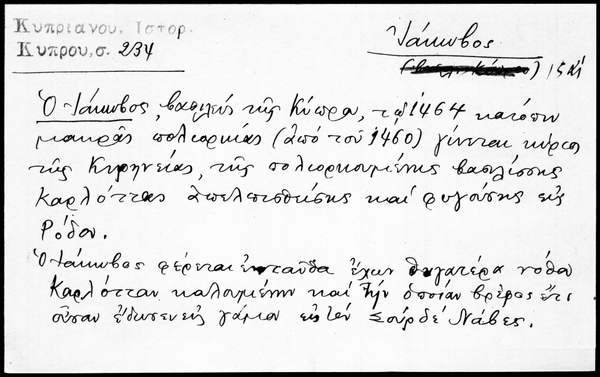 Κυπριανου. Ιστορ.
Κυπρου, σ. 234
Ἰάκωβος
Ὁ Ἰάκωβος, βασιλεύς τῆς Κύπρου, τῷ 1464 κατόπιν
μακρᾶς πολιορκίας (ἀπό τοῦ 1460) γίνεται κύριος
τῆς Κυρηνείας, τῆς πολιορκουμένης βασιλίσσης
Καρλόττας ἀπελπισθείσης καί φυγούσης εἰς
Ρόδον.
Ὁ Ἰάκωβος φέρεται ἐνταῦθα ἔχων θυγατέρα νόθα
Καρλότταν καλουμένην καί τήν ὁποίαν βρέφος ἔτι
οὖσαν ἔδωσεν εἰς γάμον εἰς τόν Σούρ δέ Νάβες.